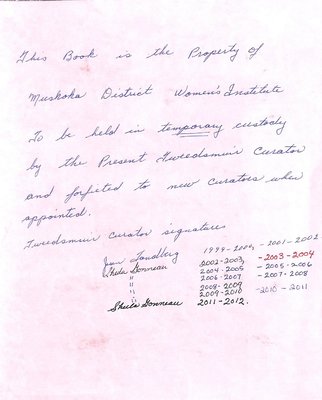 This Book is the Property of
Muskoka District Women's Institute
To be held in temporary custody
by the Present Tweedsmuir Curator
and forfeited to new curators when
appointed.
Tweedsmuir Curator signatures
1999-2000, -2001-2002
Sheila Gonneau 2002-2003, -2003-2004
" 2004-2005 -2005-2006
" 2006-2007 -2007-2008
" 2008-2009
" 2009-2010 -2010-2011
Sheila Gonneau 2011-2012.